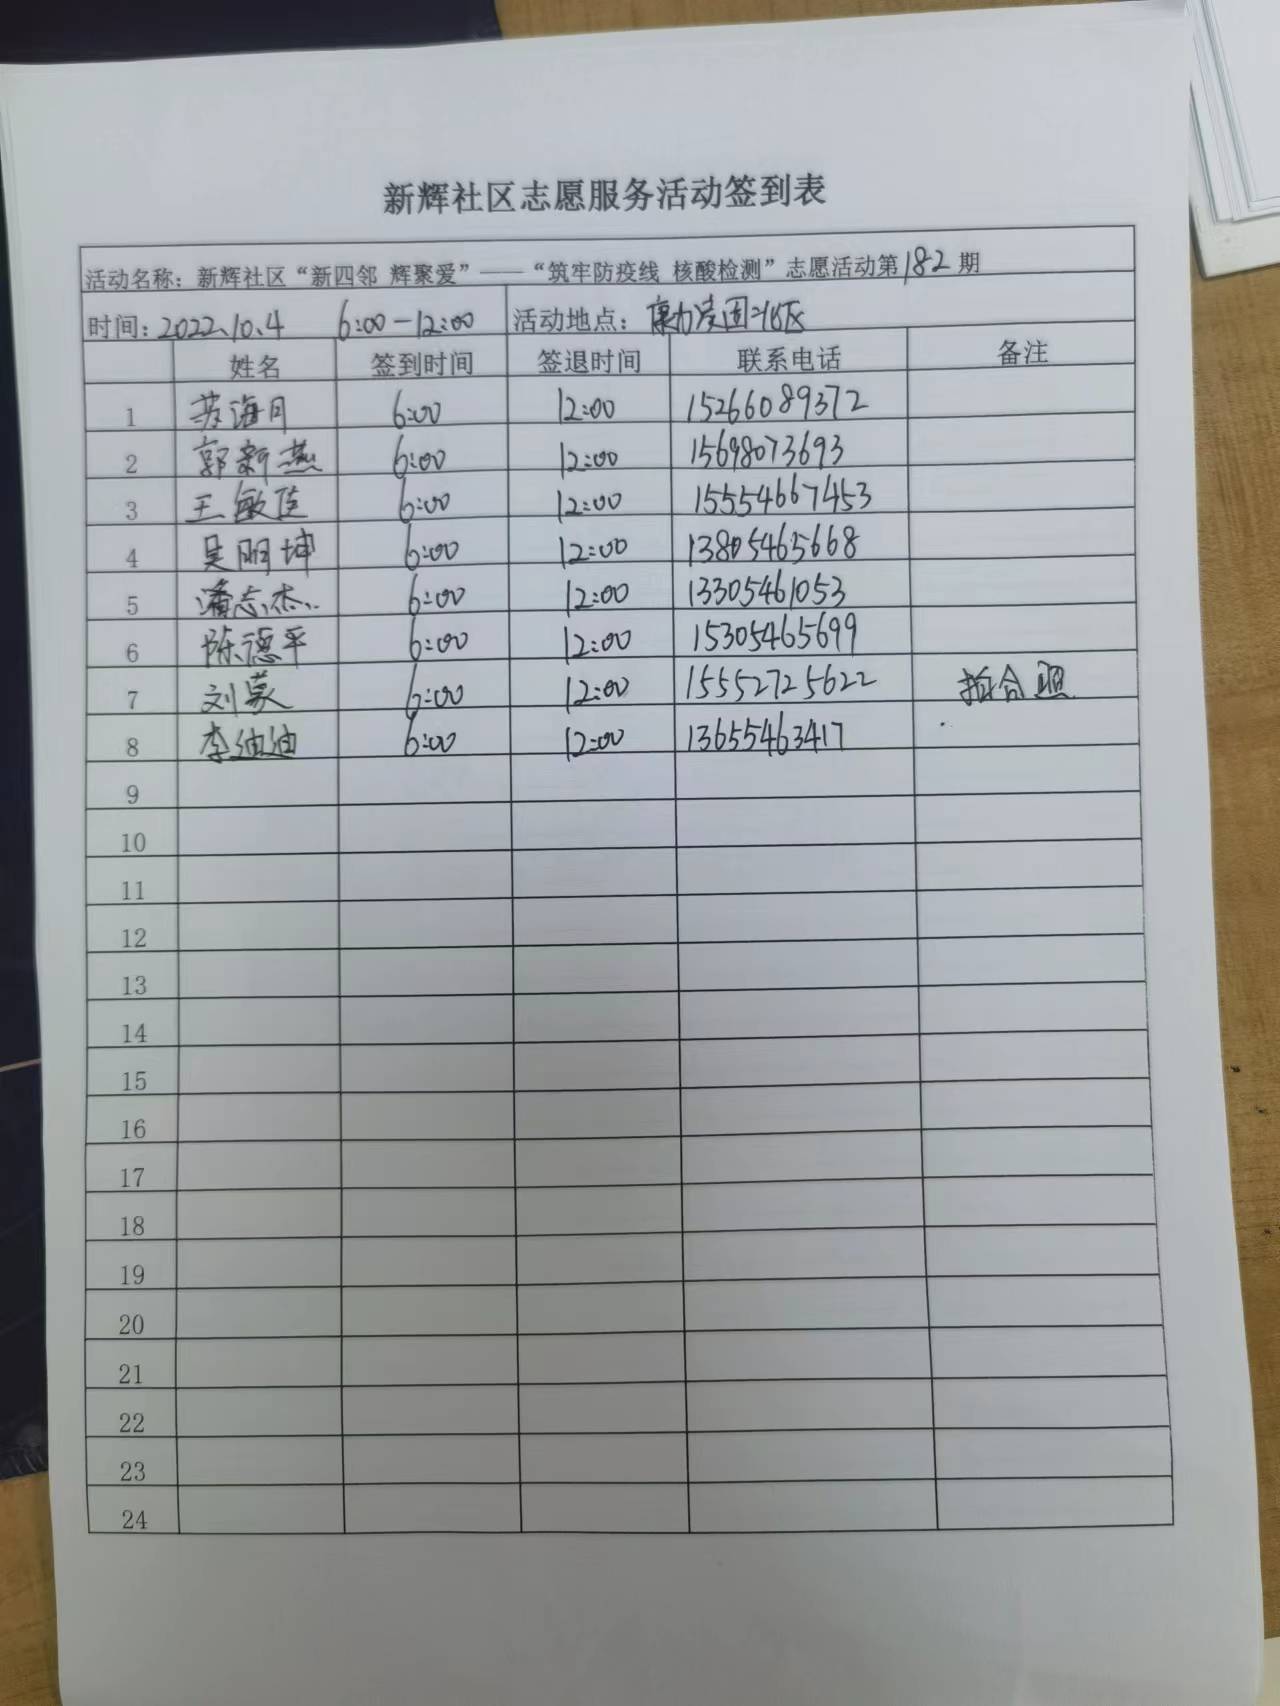 新辉社区志愿服务活动签到表
活动名称：新辉社区“新四邻 辉聚爱”——“筑牢防疫线 核酸检测”志愿活动第182期
时间：2022.10.4 6:00-12:00 活动地点：
姓名 签到时间 签退时间 联系电话 备注
1 苏海月 6:00 12:00 15266089372
2 郭新燕 6:00 12:00 15698073693
3 王敏佳 6:00 12:00 15554667453
4 吴明坤 6:00 12:00 13805465668
5 潘志杰 6:00 12:00 13305461053
6 陈德平 6:00 12:00 15305465699
7 刘蒙 6:00 12:00 15552725622 拍合照
8 李迪迪 6:00 12:00 13655463417
9
10
11
12
13
14
15
16
17
18
19
20
21
22
23
24